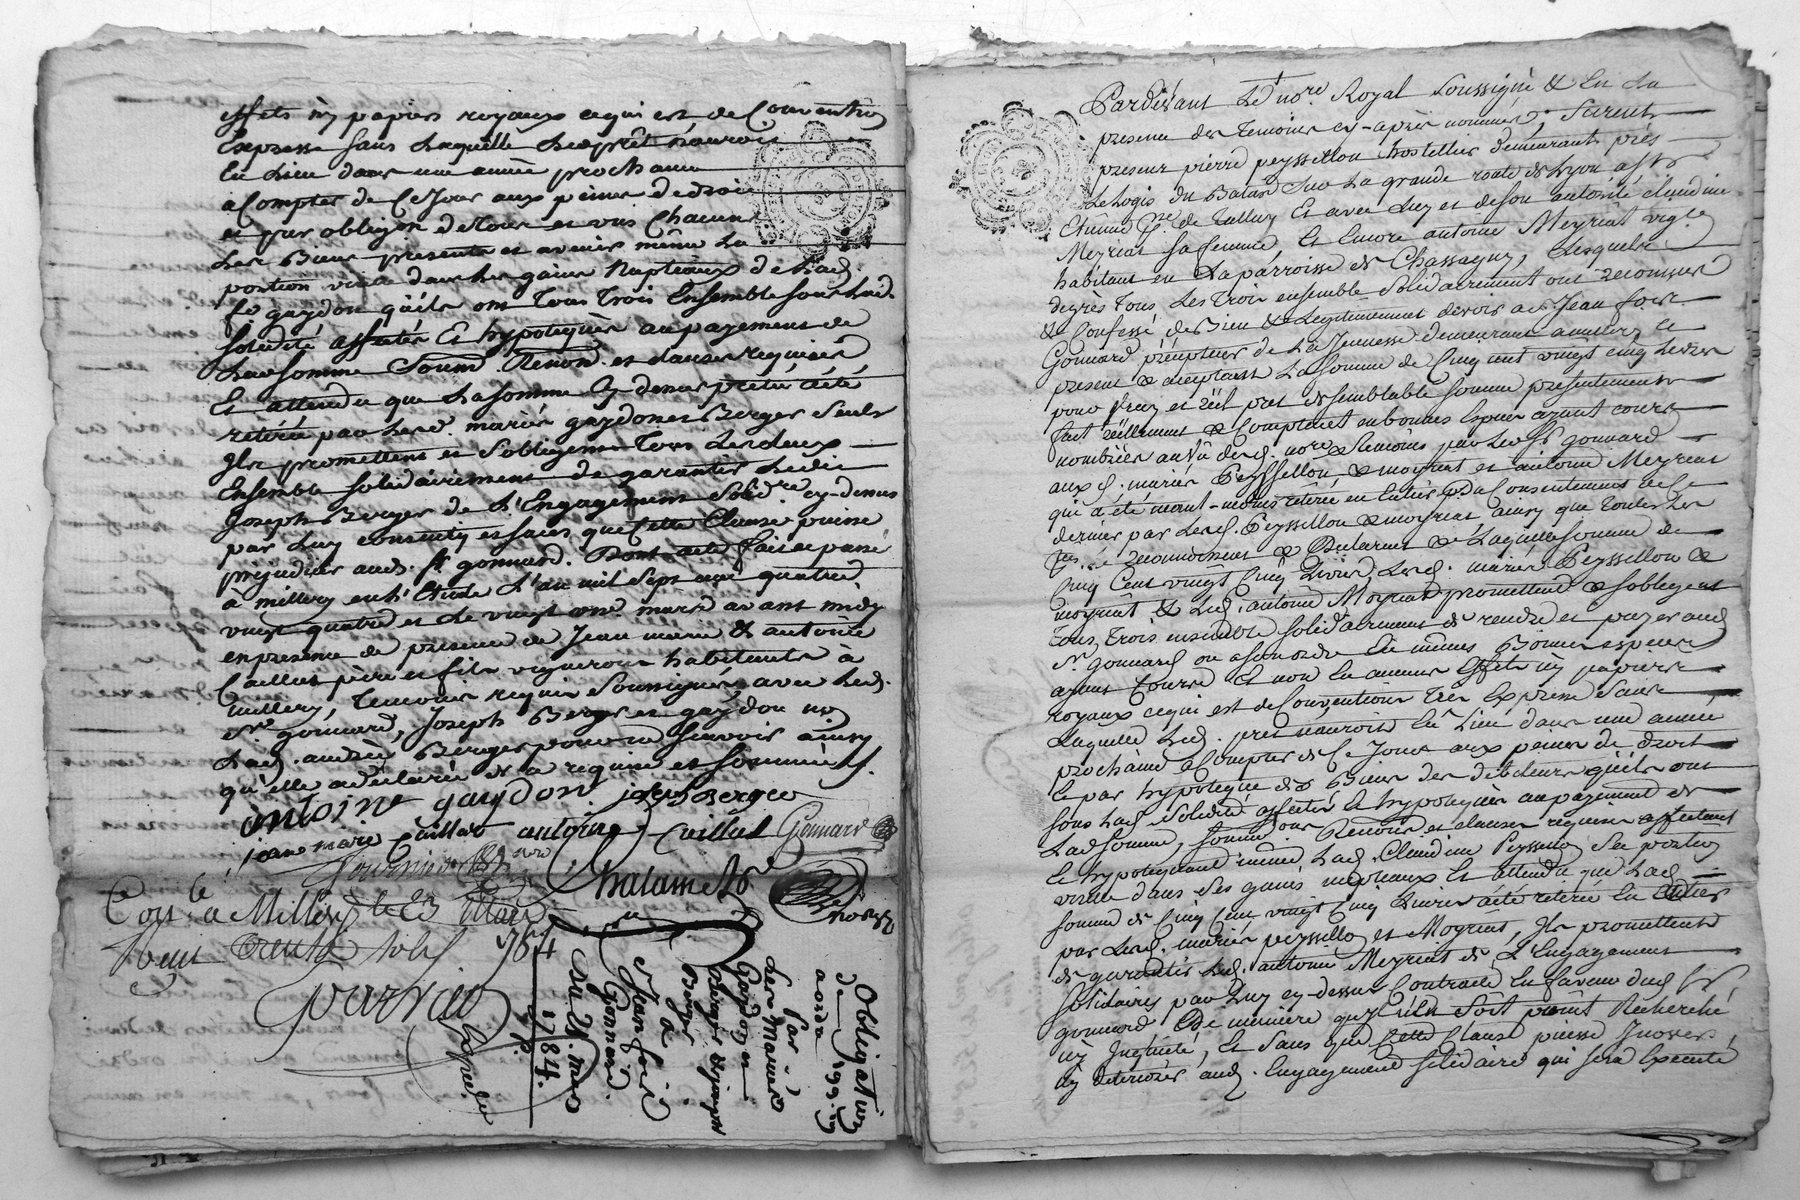 effets ny papiers royaux ce qui est de Convention
Expresse sans laquelle ledit prêt nauroit
En Lieu dans une année prochaine
a Compter de Ce Jour aux peines de droit
et par obligon de tous et uns Chacuns
Les Biens presents et avenir même La
portion virile dans les gains Nuptiaux de Lad.
fe gaydon quils ont Tous Trois Ensemble sous Lad.
solidité affectés Et hypotequés au payement de
Lad somme Soumd. Renond. et clauses requises
Et attendu que La somme Cy dessus prêtée a été
retirée par Lesd. mariés gaydon et Berger Seuls
Ils promettent et s'obligent Tous Les deux
Ensemble solidairement de garantir Ledit
Joseph Berger de L'Engagement Solidre cy-dessus
par Luy consenty et sans que Cette Clause puisse
préjudicier aud. Sr gonnard. Dont acte fait et passé
à millery en l'Etude L'an mil sept cent quatre
vingt quatre et le vingt un mars avant midy
en presence de presence de Jean marie & antoine
Caillat père et fils vignerons habitants à
millery, Temoins requis Soussignés avec Led.
Sr gonnard, Joseph Berger et gaydon non
Lad. andrée Berger pour ne sçavoir ainsy
qu'elle a declarée de ce requise et sommée /.
antoine gaydon joseph Berger
jean marie Caillat antoine Caillat Gonnard
Chalamel
Conlé a Millery le 23 Mars
1784
Reçu trente sols
Obligation
de
Par
Les Mariés
Gaydon et
Berger
à
Sr Jean fois
Gonnard
Du 21. mars
1784.
Pardevant Le nore Royal Soussigné & En La
presence des Temoins cy-après nommés, furent
presens pierre peyssellon hostellier demeurant près
Le Logis du Batard Sur La grande route de Lyon a St
Etienne pse de Tallury Et avec Luy et de son autorité claudine
Meyriat sa femme, Et Encore antoine Meyriat vigon
habitant en La parroisse de Chassagny, Lesquels
degrès Tous Les Trois ensemble Solidairement ont reconnus
& Confessé de Bien & Legitimement devoir a Sr Jean fois
Gonnard précepteur de La Jeunesse demeurant a millery Ce
present & acceptant La somme de Cinq cent vingt cinq Livres
pour Vray et réél pret de semblable somme presentement
fait réellement & Comptant en bonnes Especes ayant cours
nombrées au vû desd. nore & Temoins par Led Sr gonnard
aux d. mariés Peyssellon & moyriat et antoine Meyriat
qui a été icelle retirée en Entier Du Consentement de Ce
dernier par Lesd. Peyssellon & moyriat ainsy que Toutes Les
ptes. Le reconnoissent & Declarent & Laquelle somme de
Cinq Cent vingt Cinq Livres, Lesd. mariés Peyssellon &
moyriat & Led. antoine Moyriat promettent & sobligent
Tous Trois ensemble solidairement de rendre et payer aud
Sr. gonnard ou a son ordre En mêmes Bonnes especes
ayant Cours Et non En aucuns effets ny papiers
royaux ce qui est de Convention Très Expresse Sans
Laquelle Led. pret nauroit Eu Lieu dans une année
prochaine a Compter de Ce Jour aux peines de droit
Et par hypoteque des Biens des debiteurs quils ont
sous Lad. Solidité affectés Et hypotequés au payement de
Lad somme, Soumons Renons et clauses requises affectant
Et hypotequant même Lad. Claudine Peyssellon Sa portion
virile dans Ses gains nuptiaux Et attendu que Lad
somme de Cinq Cent vingt Cinq Livres a été retirée En Entier
par Lesd. mariés peyssellon et Moyriat, Ils promettent
de garantir Led. antoine Meyriat de L'Engagement
solidaire par Luy cy-dessus Contracté En faveur dud Sr
gonnard De maniere qu'il n'En Soit point Recherché
ny Inquieté, Et Sans que Cette Clause puisse Innover
ny deteriorer aud. Engagement solidaire qui sera Executé